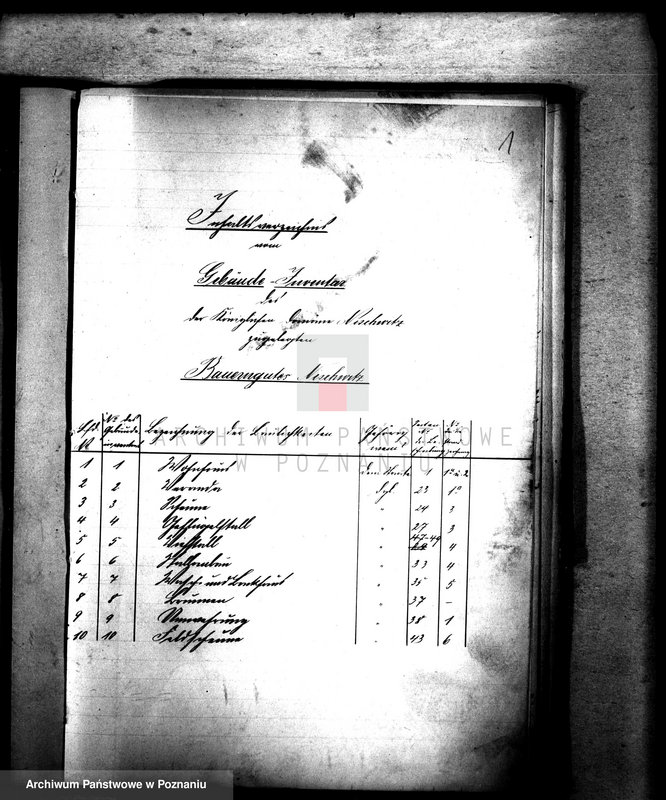 1
Inhaltsverzeichnis
vom
Gebäude-Inventar
des
der Königlichen Domäne Nischwitz
zugelegten
Bauerngutes Nischwitz
Lfd. № | № des Gebäude- | Bezeichnung der Baulichkeiten | Gehörig wem | Seiten
1 1 Wohnhaus 1a u. 2
2 2 Veranda dgl. 23 1a
3 3 Scheune " 24 3
4 4 Geflügelstall " 27 3
5 5 Viehstall " 47-49 4
6 6 " 33 4
7 7 Wasch- und Backhaus " 35 5
8 8 Brunnen " 37 –
9 9 Umwehrung " 38 1
10 10 Feldscheune " 43 6
ARCHIWUM PAŃSTWOWE
W POZNANIU
Archiwum Państwowe w Poznaniu